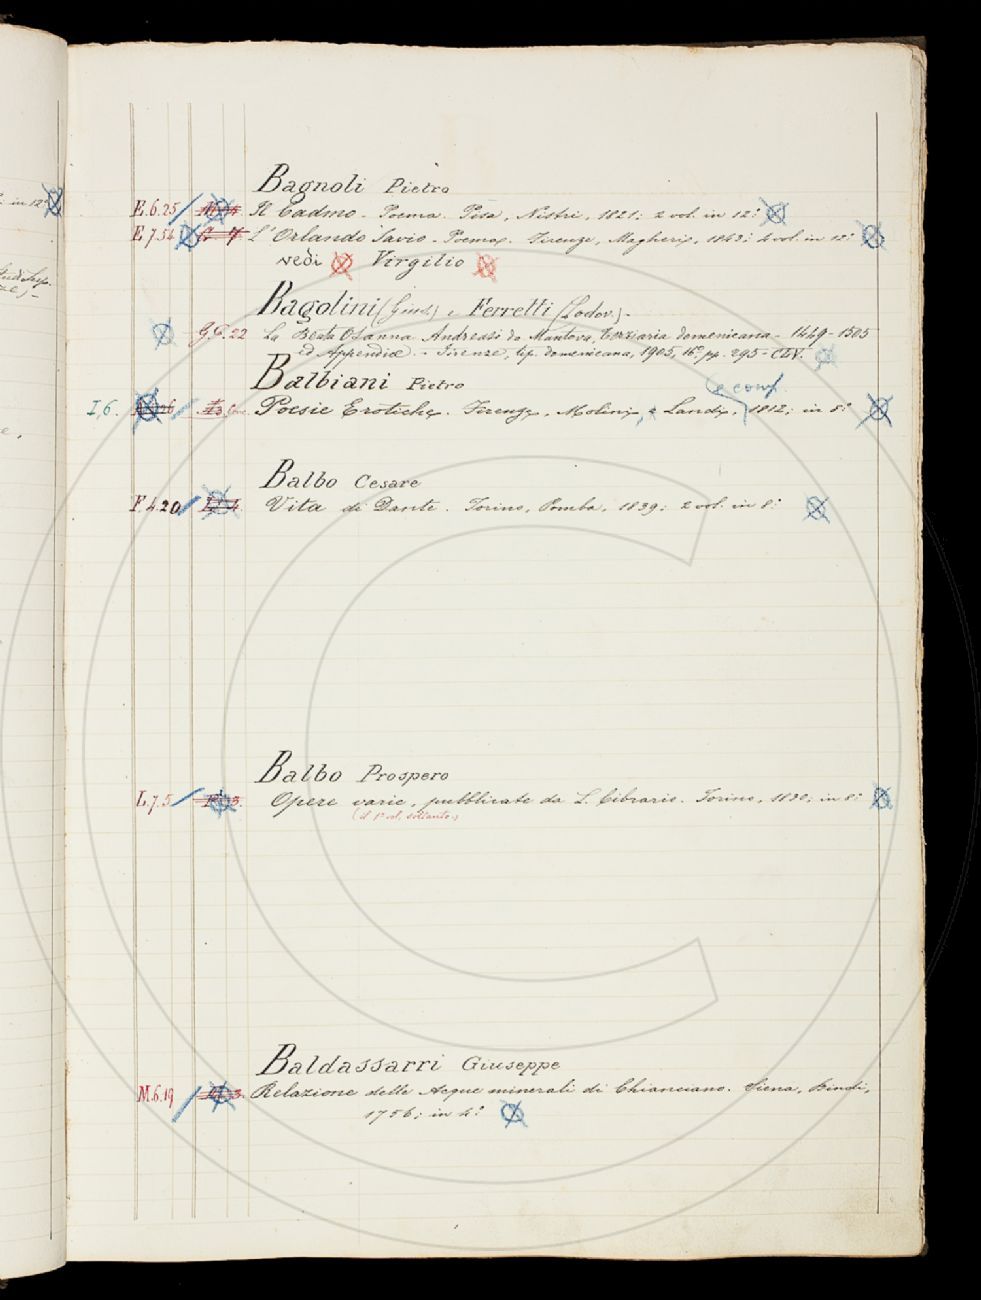 Bagnoli Pietro
E.6.25 Il Cadmo. Poema. Pisa, Nistri, 1821; 2 vol. in 12.°
E.7.54 L'Orlando Savio. Poema. Firenze, Magheri, 1843; 4 vol. in 12.°
vedi Virgilio
Bagolini (Gius.) e Ferretti (Lodov.) -
G.G.22 La Beata Osanna Andreasi da Mantova, terziaria domenicana - 1449-1505
ed Appendice. - Firenze, tip. domenicana, 1905, 16°, pp. 295-CLV.
Balbiani Pietro
e comp.
I,6. Poesie Erotiche. Firenze, Molini, Landi, 1812; in 8.°
Balbo Cesare
F.4.20 Vita di Dante. Torino, Pomba, 1839; 2 vol. in 8.°
Balbo Prospero
L.7.5 Opere varie, pubblicate da L. Cibrario. Torino, 1830; in 8.°
(il 1° vol. soltanto)
Baldassarri Giuseppe
M.6.19 Relazione delle Acque minerali di Chianciano. Siena, Bindi,
1756; in 4.°